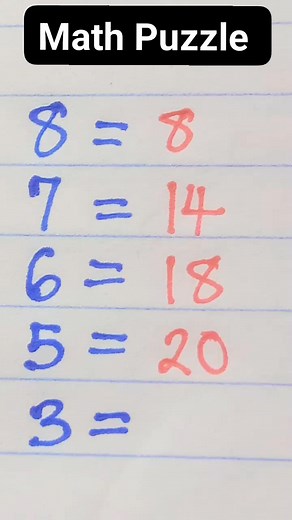 Math Puzzle
8 = 8
7 = 14
6 = 18
5 = 20
3 =